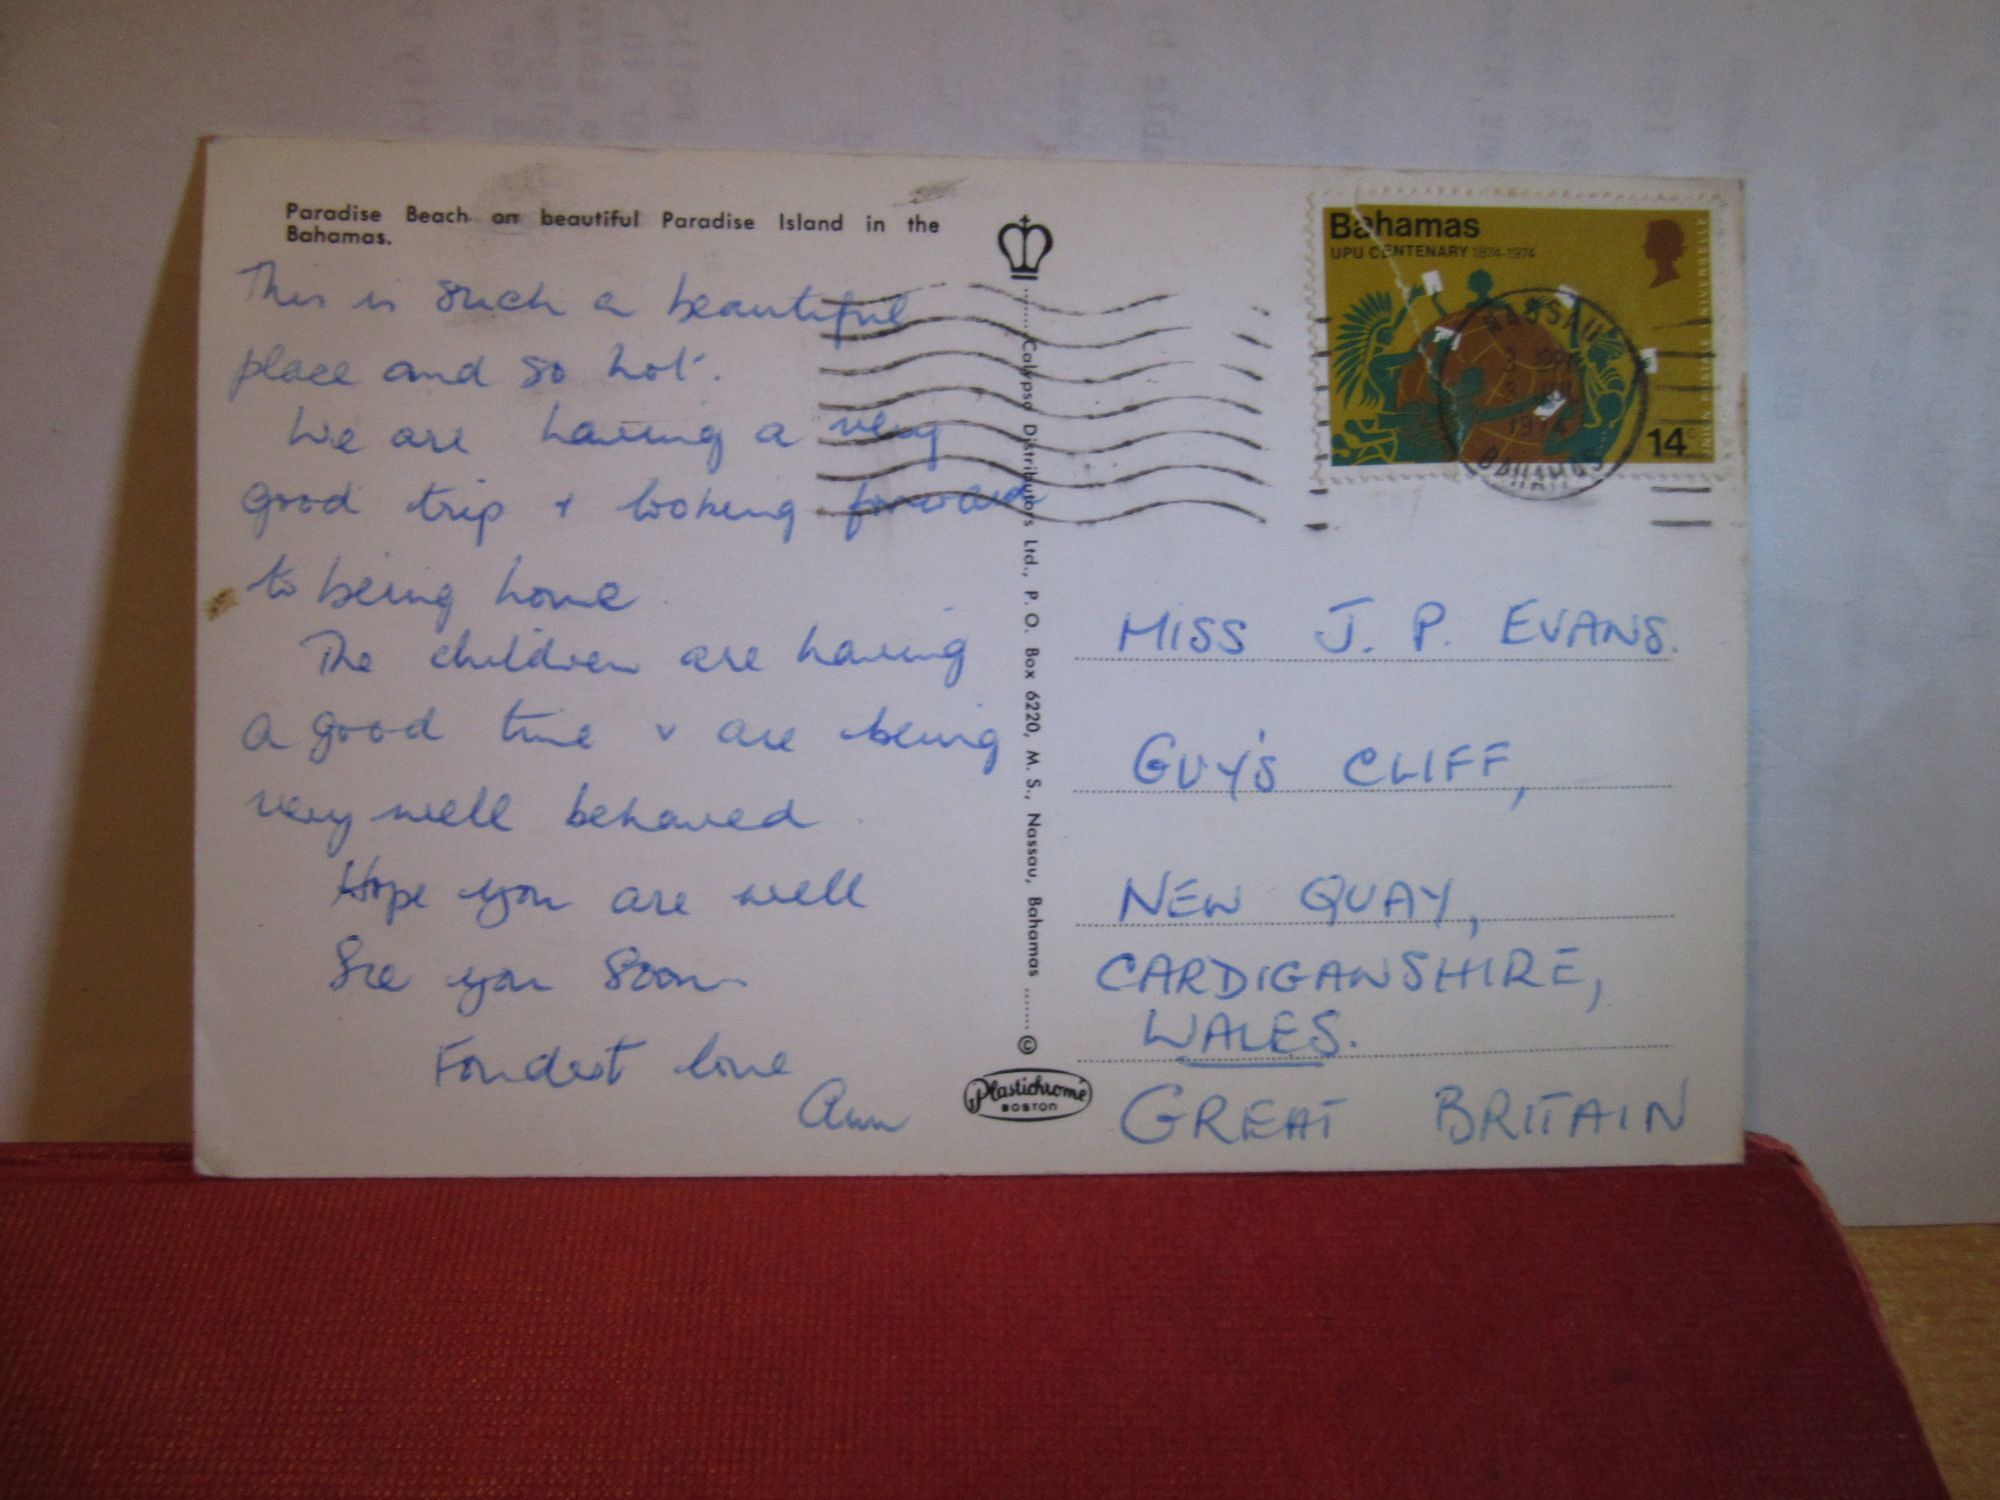 Paradise Beach on beautiful Paradise Island in the
Bahamas.
This is such a beautiful
place and so hot.
We are having a very
good trip + looking forward
to being home.
The children are having
a good time + are being
very well behaved.
Hope you are well
See you soon
Fondest love
Ann
Calypso Distributors Ltd., P. O. Box 6220, M. S., Nassau, Bahamas ©
Plastichrome
BOSTON
Bahamas
UPU CENTENARY 1874-1974
14
NASSAU
1974
BAHAMAS
MISS J. P. EVANS.
GUY'S CLIFF,
NEW QUAY,
CARDIGANSHIRE,
WALES.
GREAT BRITAIN